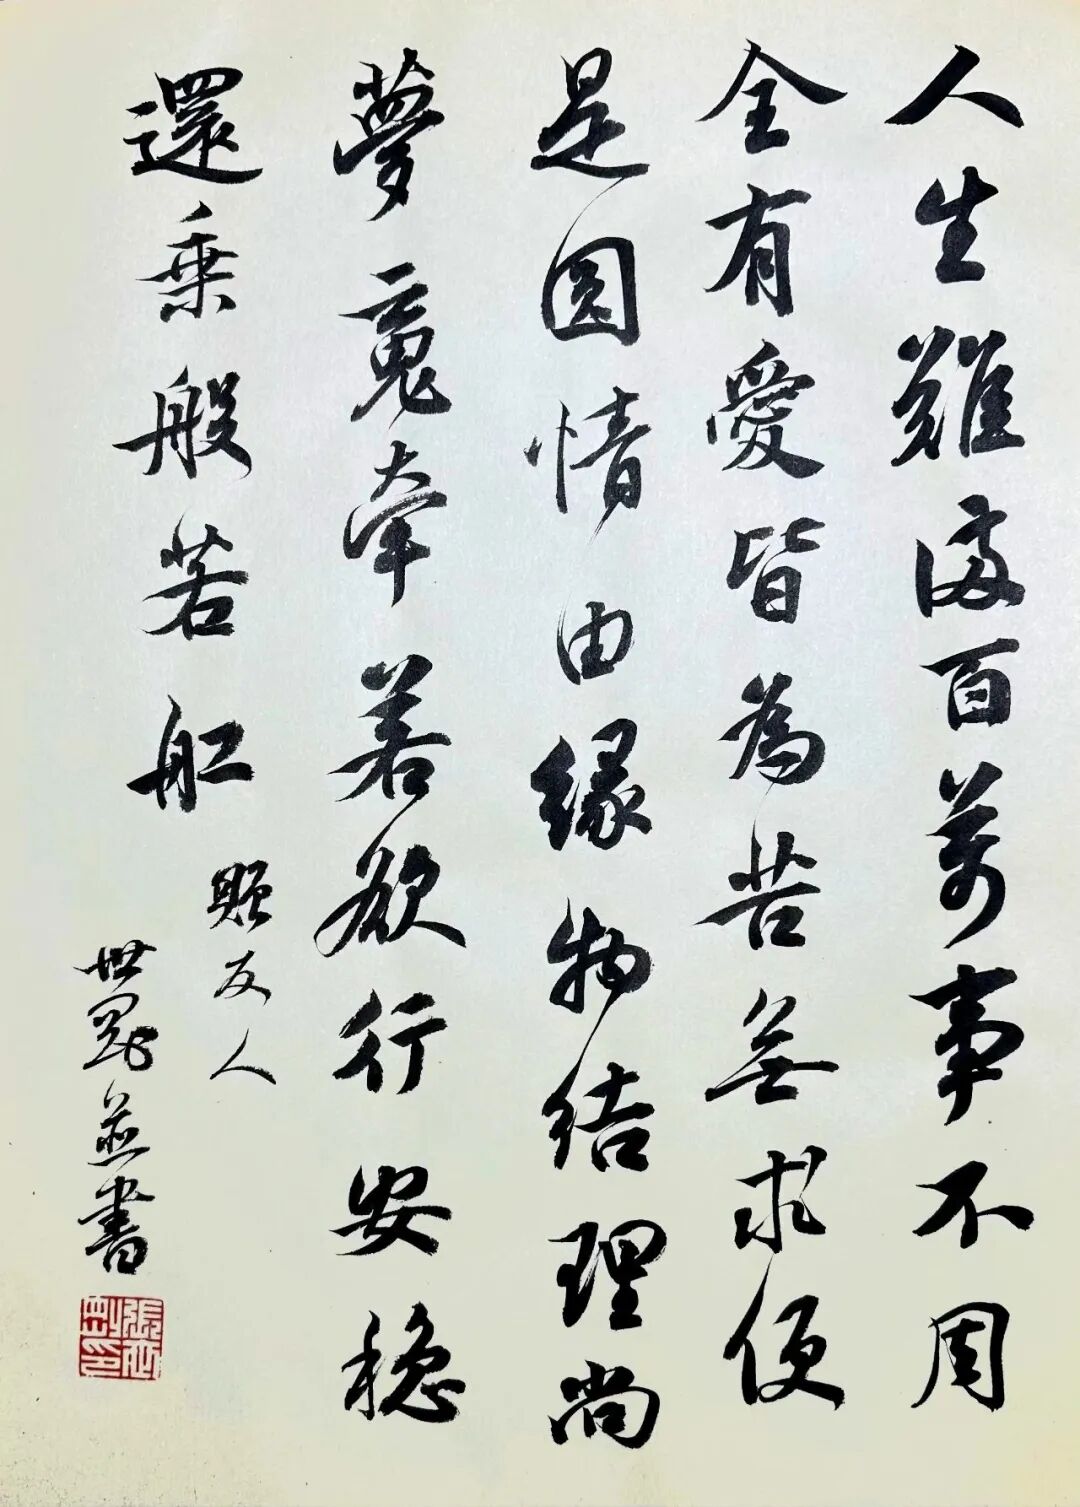 人生難滿百萬事不周
全有愛皆為苦無求便
是圓情由緣物結理尚
夢魂牽若欲行安穩
還乘般若舡
贈友人
世剛並書
張世剛印